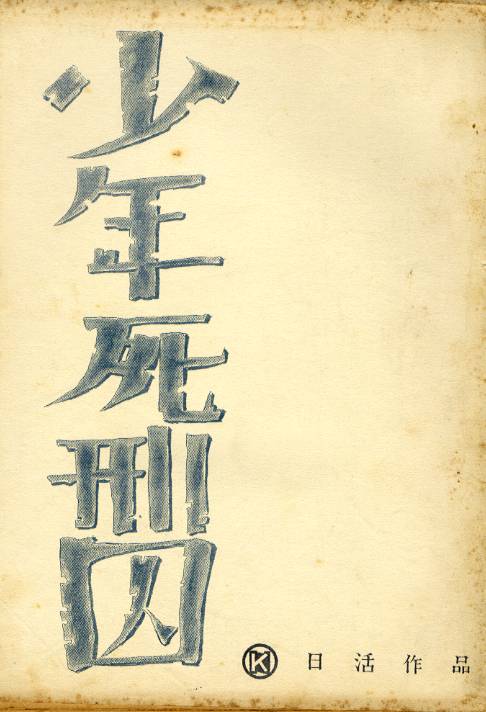 少年死刑囚
K 日活作品